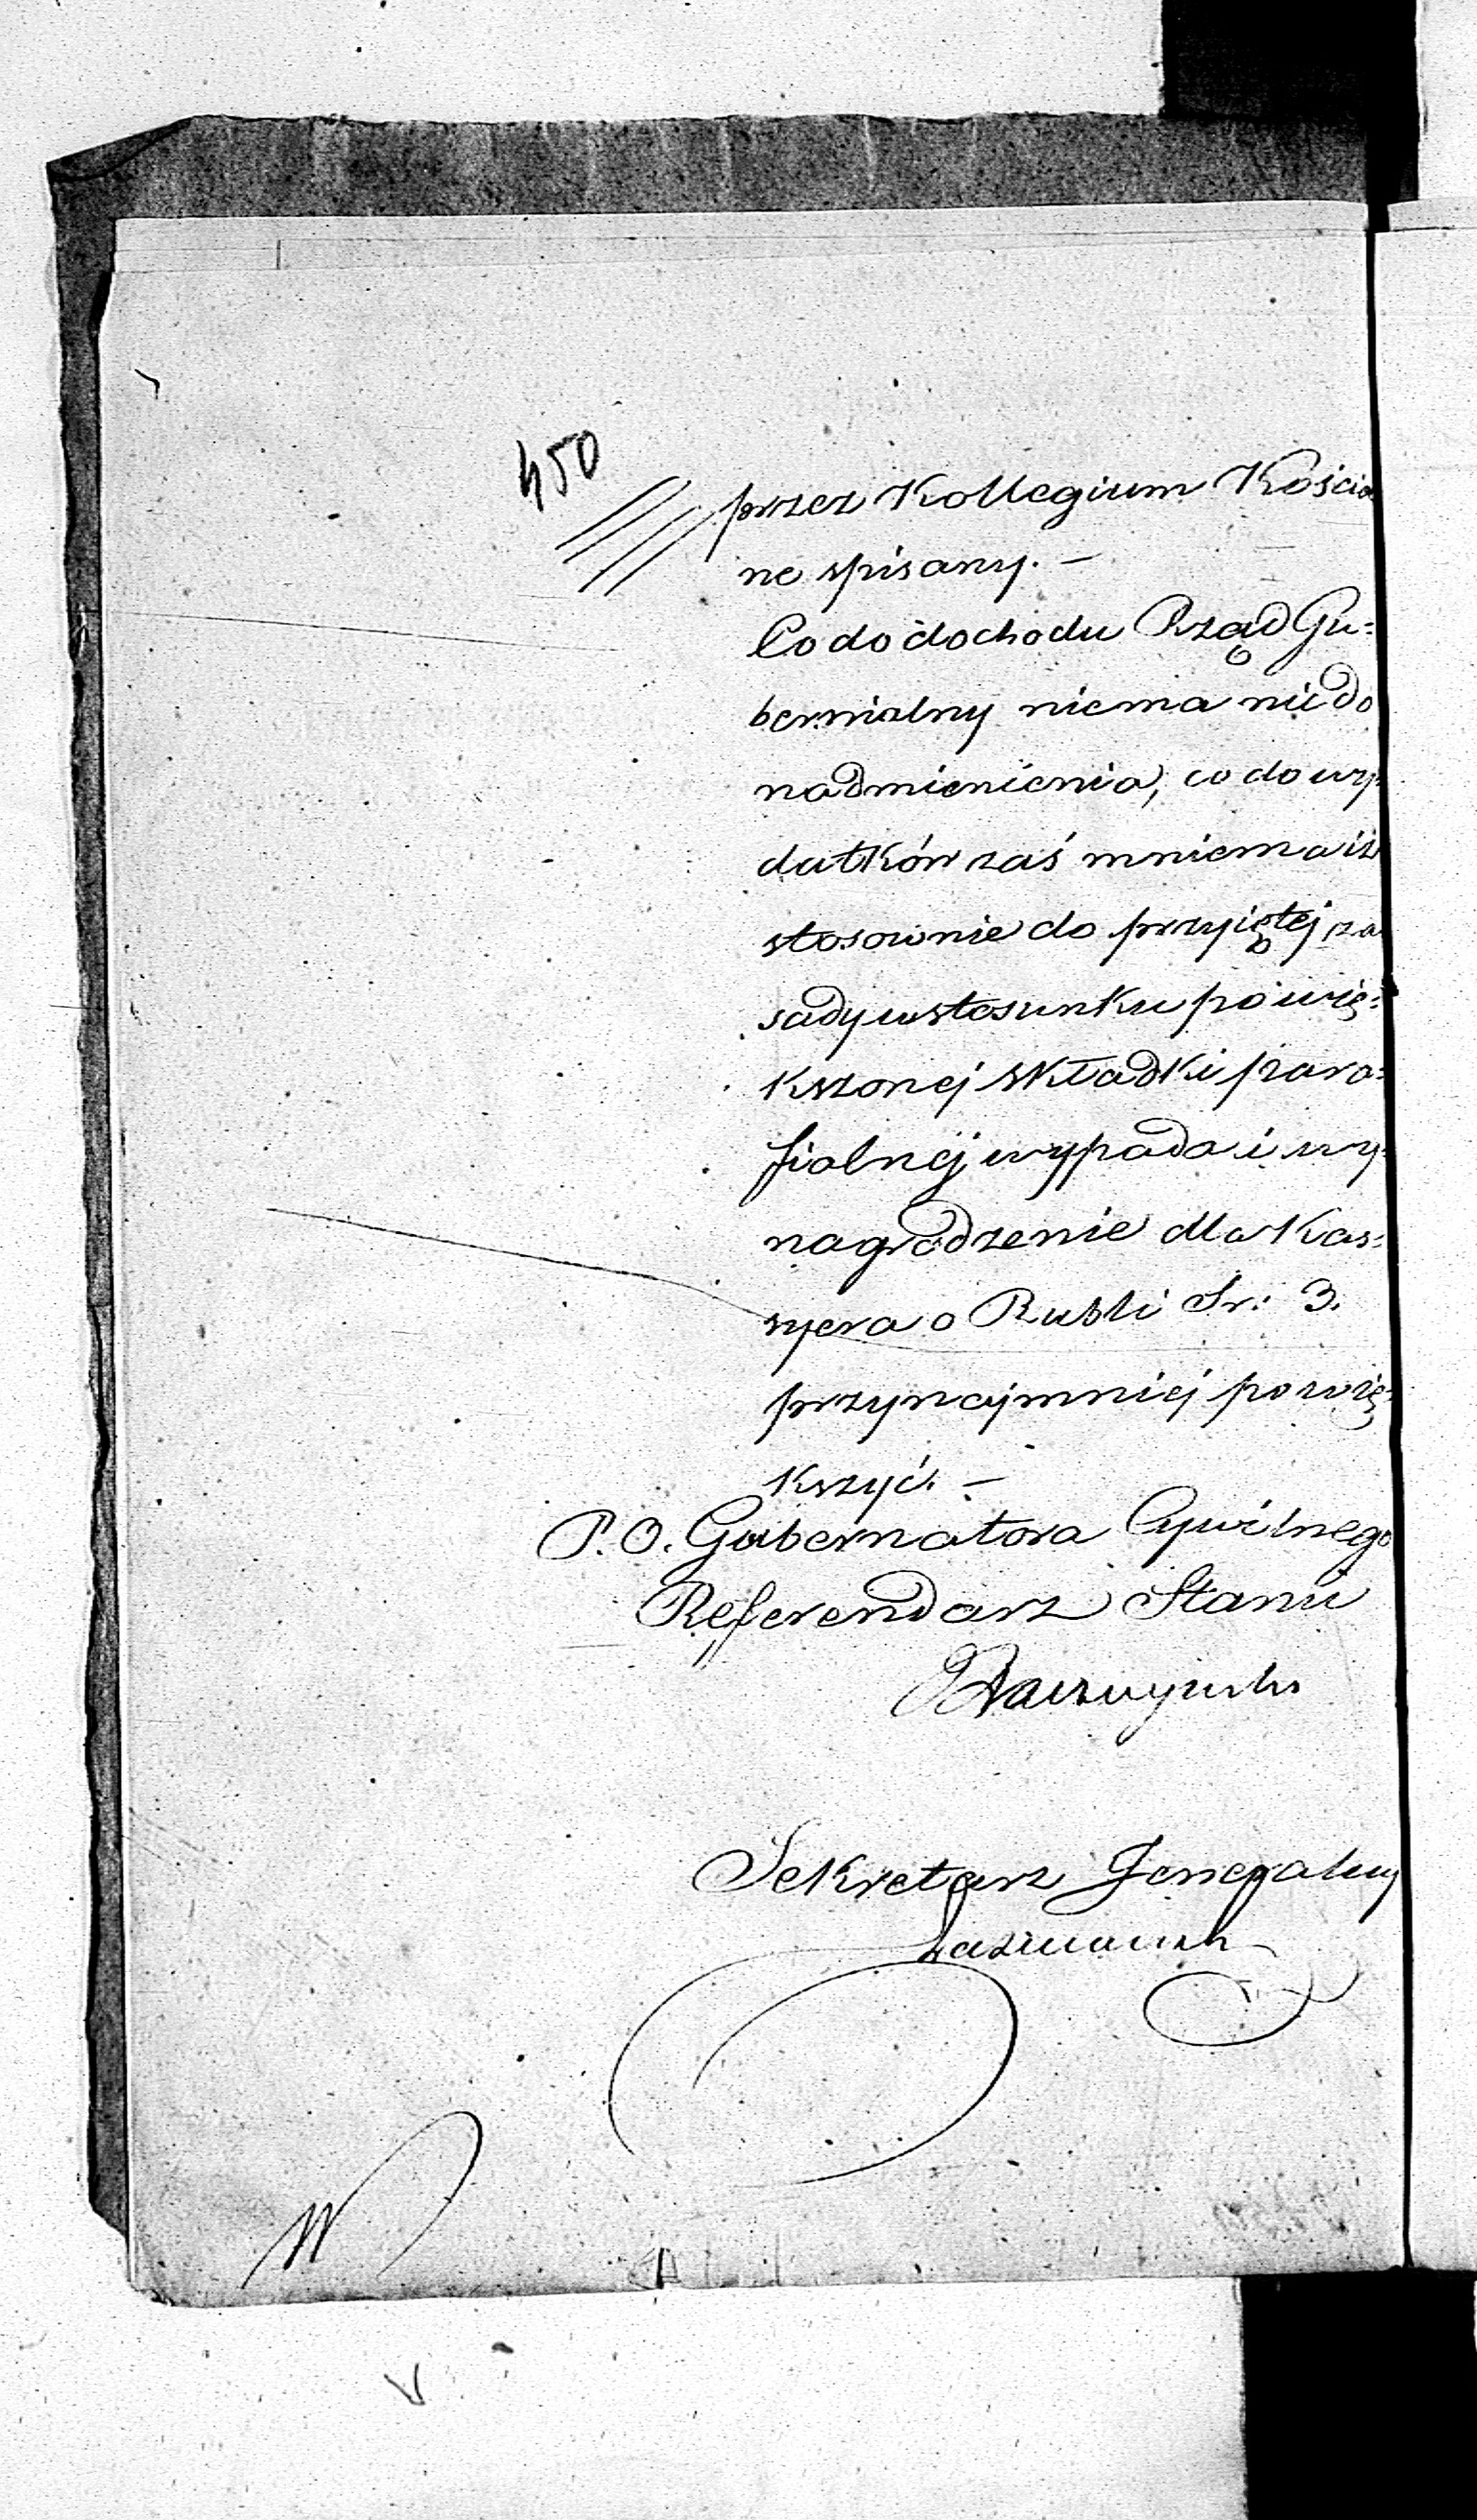 450
przez Kollegium Kościo
ne spisany. —
Co do dochodu Rząd Gu=
bernialny niema nic do
nadmienienia, co do wy=
datków zaś mniema iż
stosownie do przyiętej za
sady w stosunku powię=
kszonej składki para=
fialnej wypada i wy=
nagrodzenie dla Kas=
syera o Rubli Sr: 3.
przynajmniej powię=
kszyć. —
P. O. Gubernatora Cywilnego
Referendarz Stanu
Sekretarz Jeneralny